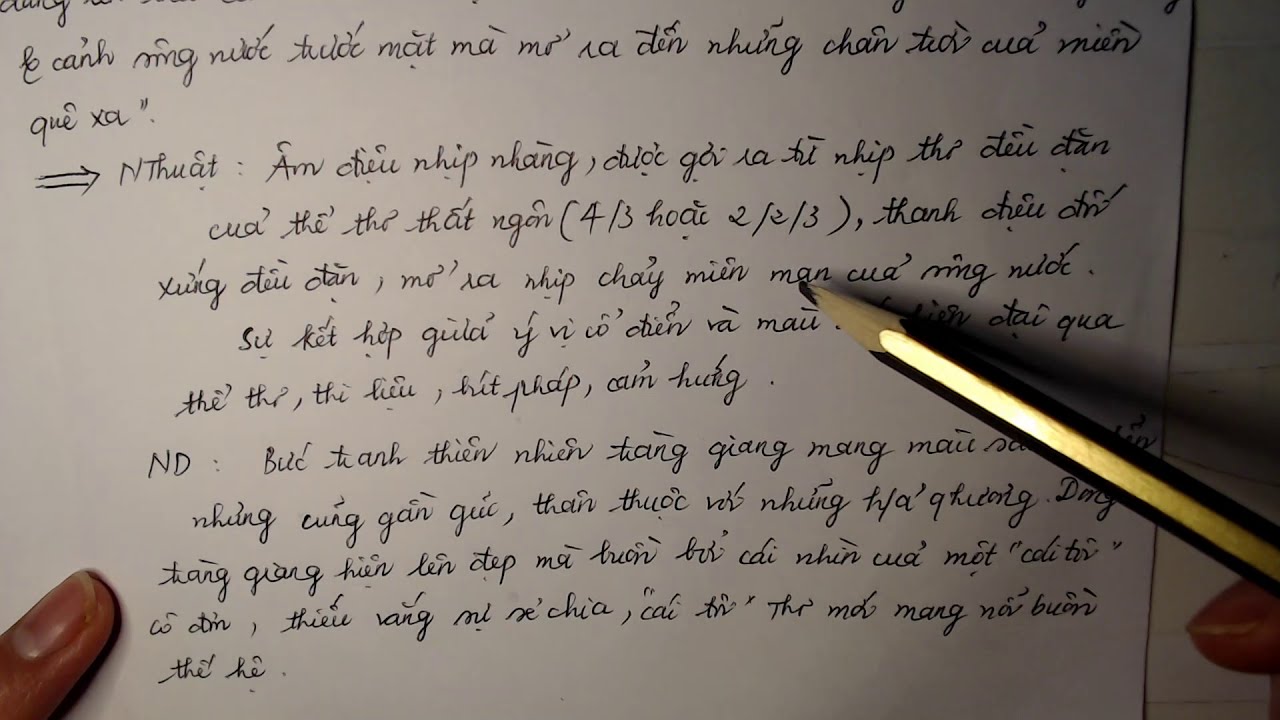 & cảnh sông nước trước mặt mà mở ra đến những chân trời của miền
quê xa".
=> NThuật : Âm điệu nhịp nhàng, được gợi ra từ nhịp thơ đều đặn
của thể thơ thất ngôn (4/3 hoặc 2/2/3), thanh điệu đối
xứng đều đặn, mở ra nhịp chảy miên man của sông nước.
Sự kết hợp giữa ý vị cổ điển và màu đại qua
thể thơ, thi liệu, bút pháp, cảm hứng.
ND : Bức tranh thiên nhiên tràng giang mang màu
nhưng cũng gần gũi, thân thuộc với những h/ả q/hương. Dòng
tràng giang hiện lên đẹp mà buồn bởi cái nhìn của một "cái tôi"
cô đơn, thiếu vắng sự sẻ chia, "cái tôi" Thơ mới mang nỗi buồn
thế hệ.